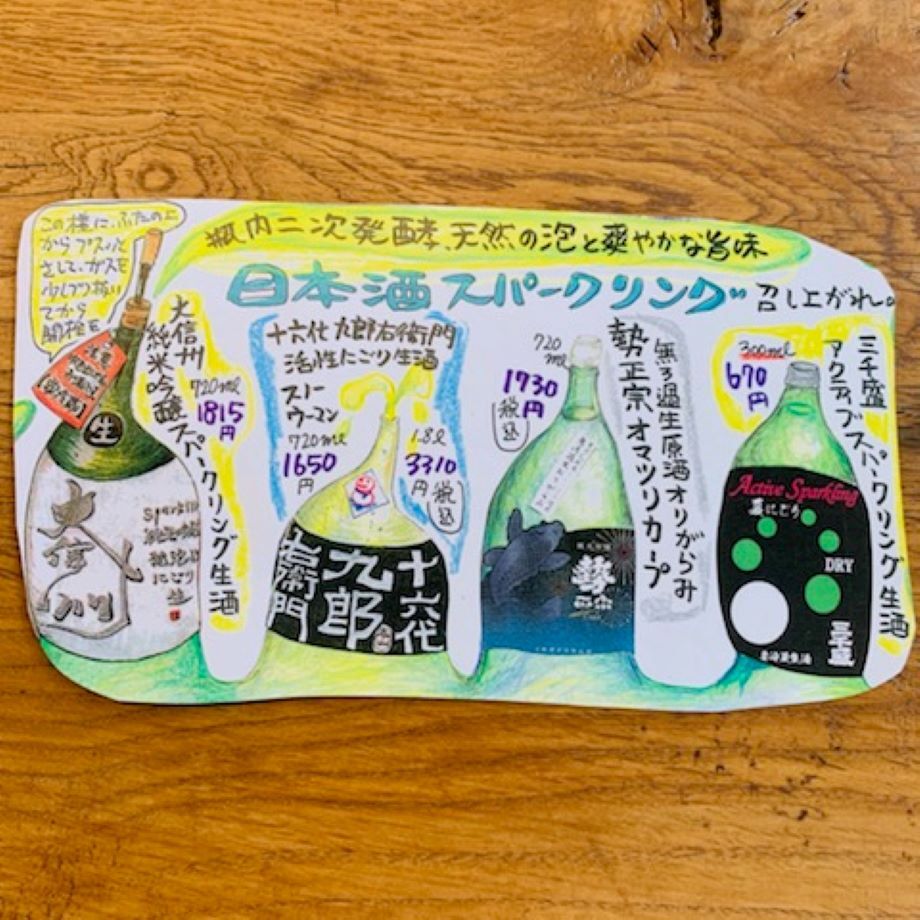 瓶内二次発酵、天然の泡と爽やかな旨味
日本酒スパークリング召し上がれ。
この様に、ふたの上
からプスッと
さして、ガスを
少しづつ抜い
てから
開栓を
大信州
純米吟醸スパークリング生酒
720ml
1815
円
生
大信州
十六代九郎右衛門
活性にごり生酒
スノー
ウーマン
720ml
1650
円
1.8ℓ
3310
円
税込
十六代
九郎
右衛門
勢正宗オマツリカープ
無ろ過生原酒オリがらみ
720
ml
1730
円
税込
勢
正宗
三千盛
アクティブスパークリング生酒
300ml
670
円
Active Sparkling
DRY
三千盛